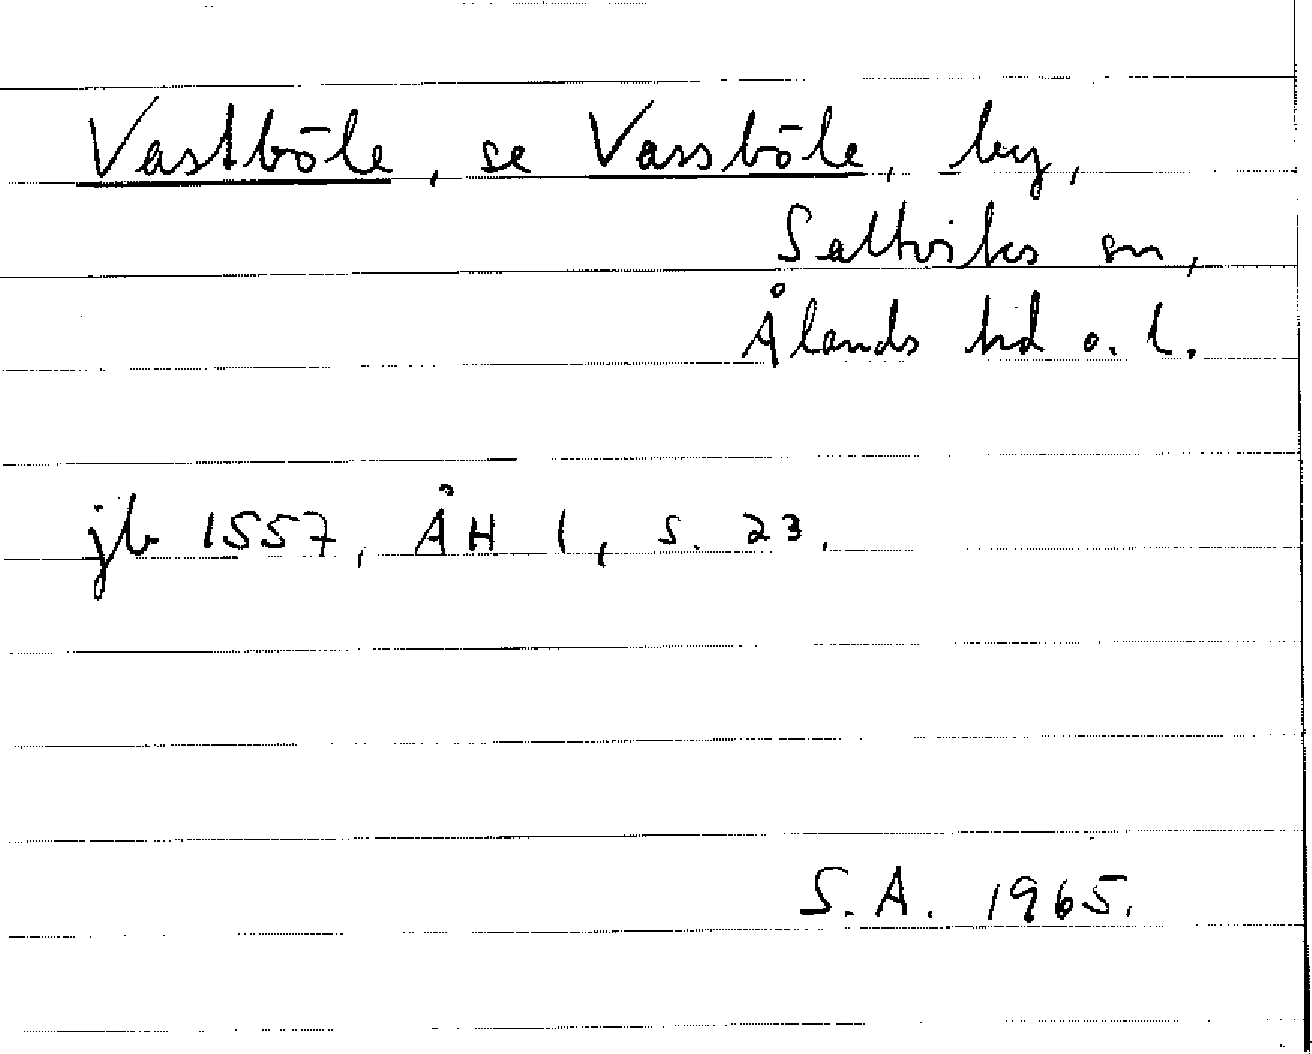 Vastböle, se Vassböle, by,
Saltviks sn,
Ålands hd o. l.
jb 1557, ÅH 1, s. 23.
S.A. 1965.